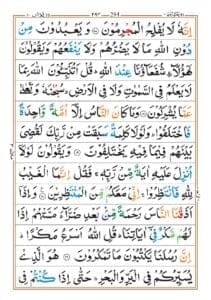 اِنَّهٗ لَا يُفْلِحُ الْمُجْرِمُوْنَ ۝ وَ يَعْبُدُوْنَ مِنْ
دُوْنِ اللّٰهِ مَا لَا يَضُرُّهُمْ وَلَا يَنْفَعُهُمْ وَيَقُوْلُوْنَ
هٰٓؤُلَآءِ شُفَعَآؤُنَا عِنْدَ اللّٰهِ ؕ قُلْ اَتُنَبِّـُٔوْنَ اللّٰهَ بِمَا
لَا يَعْلَمُ فِى السَّمٰوٰتِ وَلَا فِى الْاَرْضِ ؕ سُبْحٰنَهٗ وَتَعٰلٰى
عَمَّا يُشْرِكُوْنَ ۝ وَمَا كَانَ النَّاسُ اِلَّاۤ اُمَّةً وَّاحِدَةً
فَاخْتَلَفُوْا ؕ وَلَوْلَا كَلِمَةٌ سَبَقَتْ مِنْ رَّبِّكَ لَقُضِىَ
بَيْنَهُمْ فِيْمَا فِيْهِ يَخْتَلِفُوْنَ ۝ وَيَقُوْلُوْنَ لَوْلَاۤ
اُنْزِلَ عَلَيْهِ اٰيَةٌ مِّنْ رَّبِّهٖ ۚ فَقُلْ اِنَّمَا الْغَيْبُ
لِلّٰهِ فَانْتَظِرُوْا ۚ اِنِّىْ مَعَكُمْ مِّنَ الْمُنْتَظِرِيْنَ ۝ وَاِذَاۤ
اَذَقْنَا النَّاسَ رَحْمَةً مِّنْۢ بَعْدِ ضَرَّآءَ مَسَّتْهُمْ اِذَا
لَهُمْ مَّكْرٌ فِىْۤ اٰيَاتِنَا ؕ قُلِ اللّٰهُ اَسْرَعُ مَكْرًا ؕ
اِنَّ رُسُلَنَا يَكْتُبُوْنَ مَا تَمْكُرُوْنَ ۝ هُوَ الَّذِىْ
يُسَيِّرُكُمْ فِى الْبَرِّ وَالْبَحْرِ ؕ حَتّٰۤى اِذَا كُنْتُمْ فِى